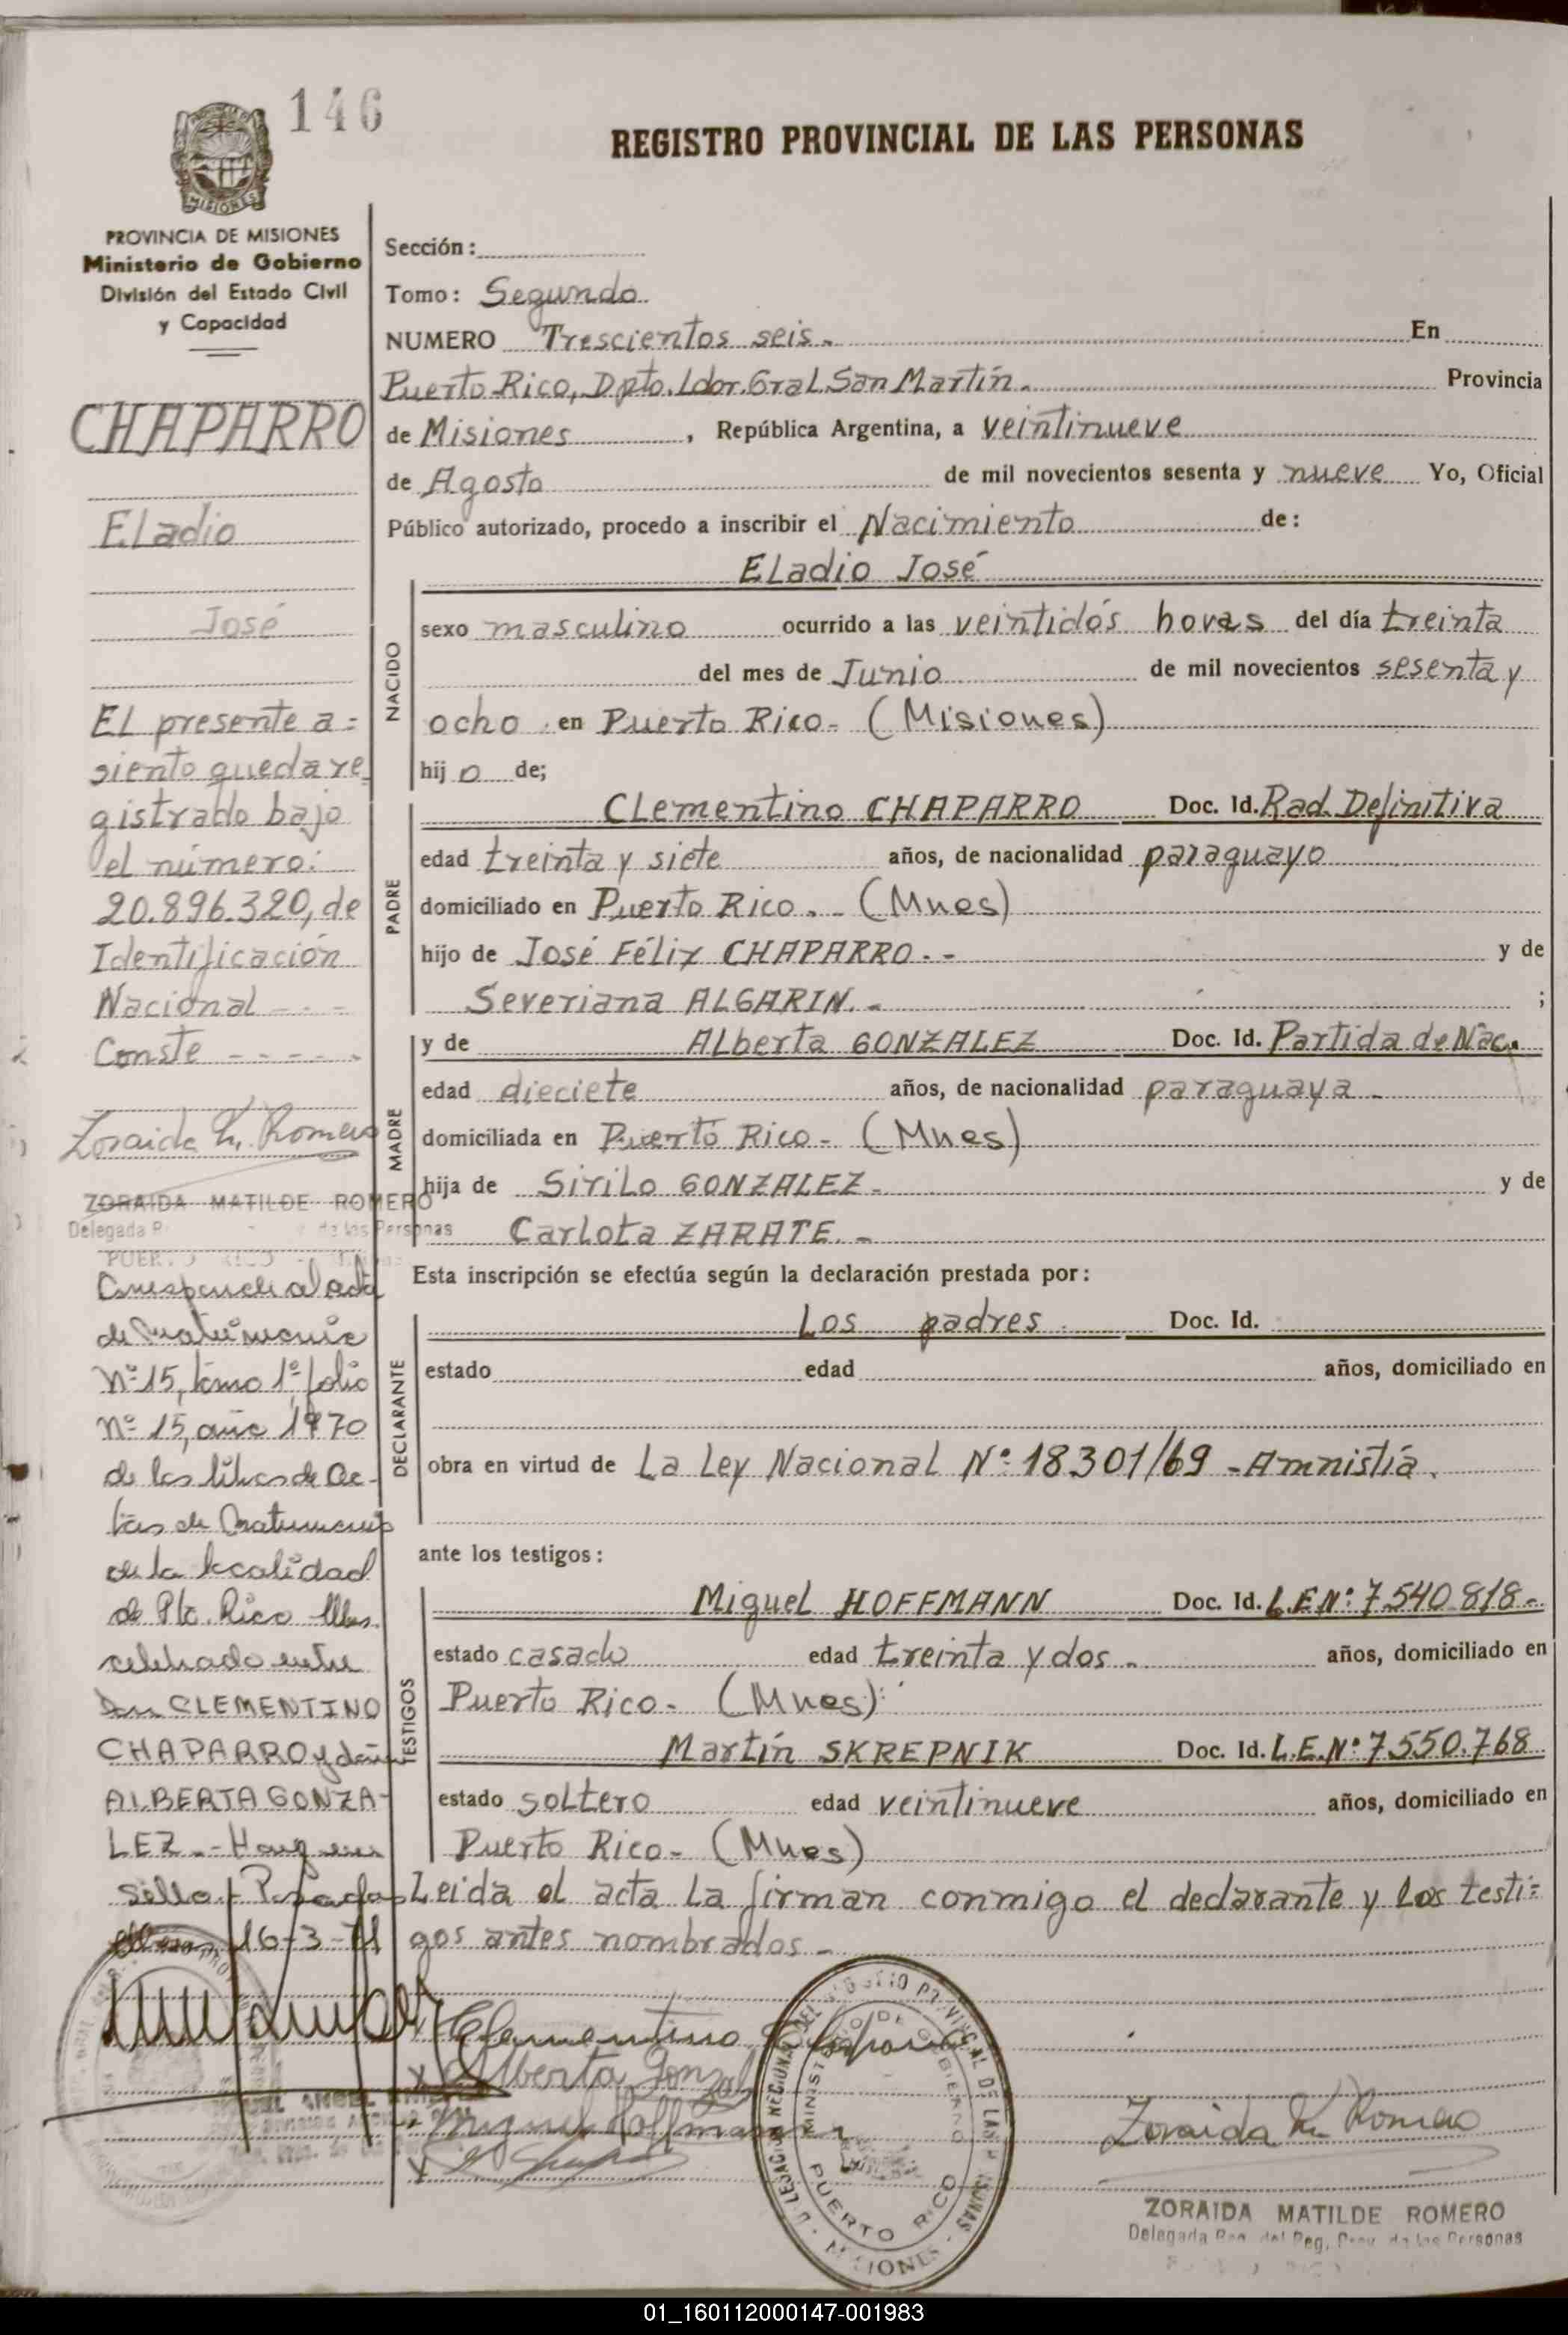 146
REGISTRO PROVINCIAL DE LAS PERSONAS
MISIONES
PROVINCIA DE MISIONES
Ministerio de Gobierno
División del Estado Civil
y Capacidad
CHAPARRO
Eladio
José
El presente a=
siento queda re
gistrado bajo
el número:
20.896.320, de
Identificación
Nacional - - -
Conste - - - - -
Zoraida M. Romero
ZORAIDA MATILDE ROMERO
Delegada de las Personas
PUERTO RICO
Corresponde al acta
de matrimonio
Nº 15, tomo 1º, folio
Nº 15, año 1970
de los libros de Ac-
tas de Matrimonio
de la localidad
de Pto. Rico Mnes.
celebrado entre
Don CLEMENTINO
CHAPARRO y doña
ALBERTA GONZA-
LEZ.- Hay un
sello. Posadas
16-3-71
Sección:
Tomo: Segundo
NUMERO Trescientos seis.- En
Puerto Rico, Dpto. Ldor. Gral. San Martín. Provincia
de Misiones, República Argentina, a veintinueve
de Agosto de mil novecientos sesenta y nueve Yo, Oficial
Público autorizado, procedo a inscribir el Nacimiento de:
Eladio José
NACIDO
sexo masculino ocurrido a las veintidós horas del día treinta
del mes de Junio de mil novecientos sesenta y
ocho en Puerto Rico- (Misiones)
hijo de;
PADRE
Clementino CHAPARRO Doc. Id. Rad. Definitiva
edad treinta y siete años, de nacionalidad paraguayo
domiciliado en Puerto Rico.- (Mnes)
hijo de José Félix CHAPARRO.- y de
Severiana ALGARIN.- ;
MADRE
y de Alberta GONZALEZ Doc. Id. Partida de Nac.
edad dieciete años, de nacionalidad paraguaya -
domiciliada en Puerto Rico- (Mnes)
hija de Sirilo GONZALEZ- y de
Carlota ZARATE.-
Esta inscripción se efectúa según la declaración prestada por:
DECLARANTE
Los padres Doc. Id.
estado edad años, domiciliado en
obra en virtud de La Ley Nacional Nº 18301/69 -Amnistía.
ante los testigos:
TESTIGOS
Miguel HOFFMANN Doc. Id. L.E.Nº: 7.540.818-
estado casado edad treinta y dos - años, domiciliado en
Puerto Rico- (Mnes)
Martín SKREPNIK Doc. Id. L.E.Nº 7.550.768
estado soltero edad veintinueve años, domiciliado en
Puerto Rico- (Mnes)
Leida el acta la firman conmigo el declarante y los testi=
gos antes nombrados-
Clementino Chaparro
x Alberta Gonzalez
Miguel Hoffmann
MINISTERIO DE GOBIERNO
PUERTO RICO
MISIONES
Zoraida M. Romero
ZORAIDA MATILDE ROMERO
Delegada Reg. del Reg. Prov. de las Personas
01_160112000147-001983